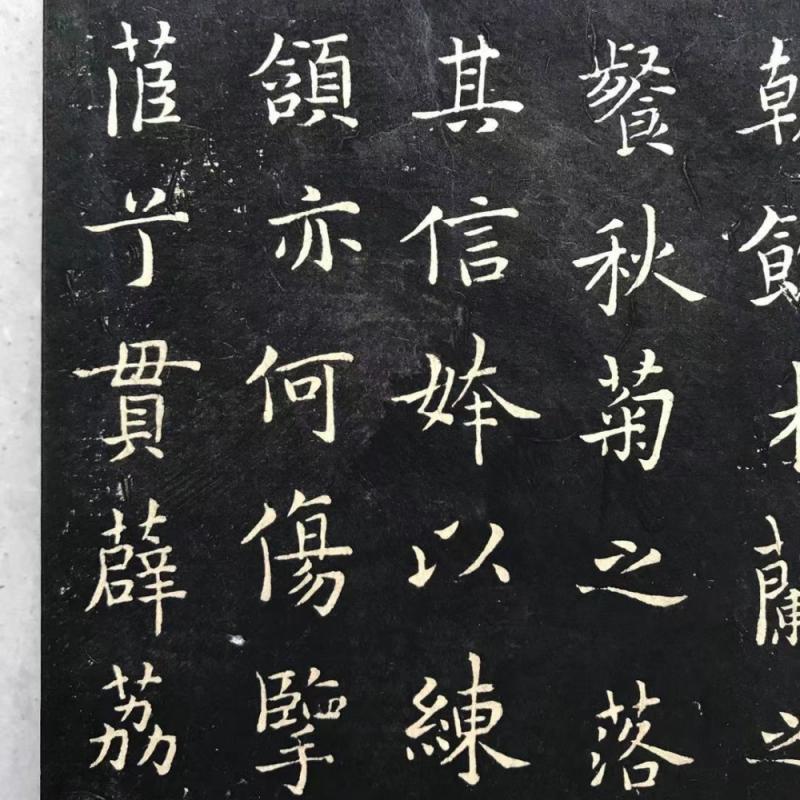 朝飲木蘭之
餐秋菊之落
其信姱以練
頷亦何傷擥
茝兮貫薜荔